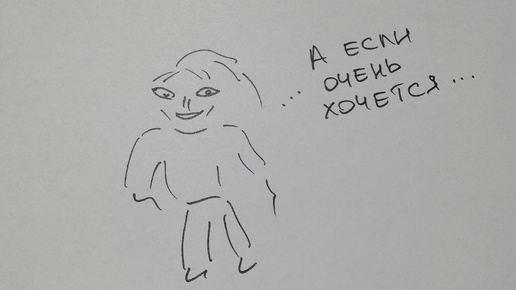 ... А ЕСЛИ
ОЧЕНЬ
ХОЧЕТСЯ ...